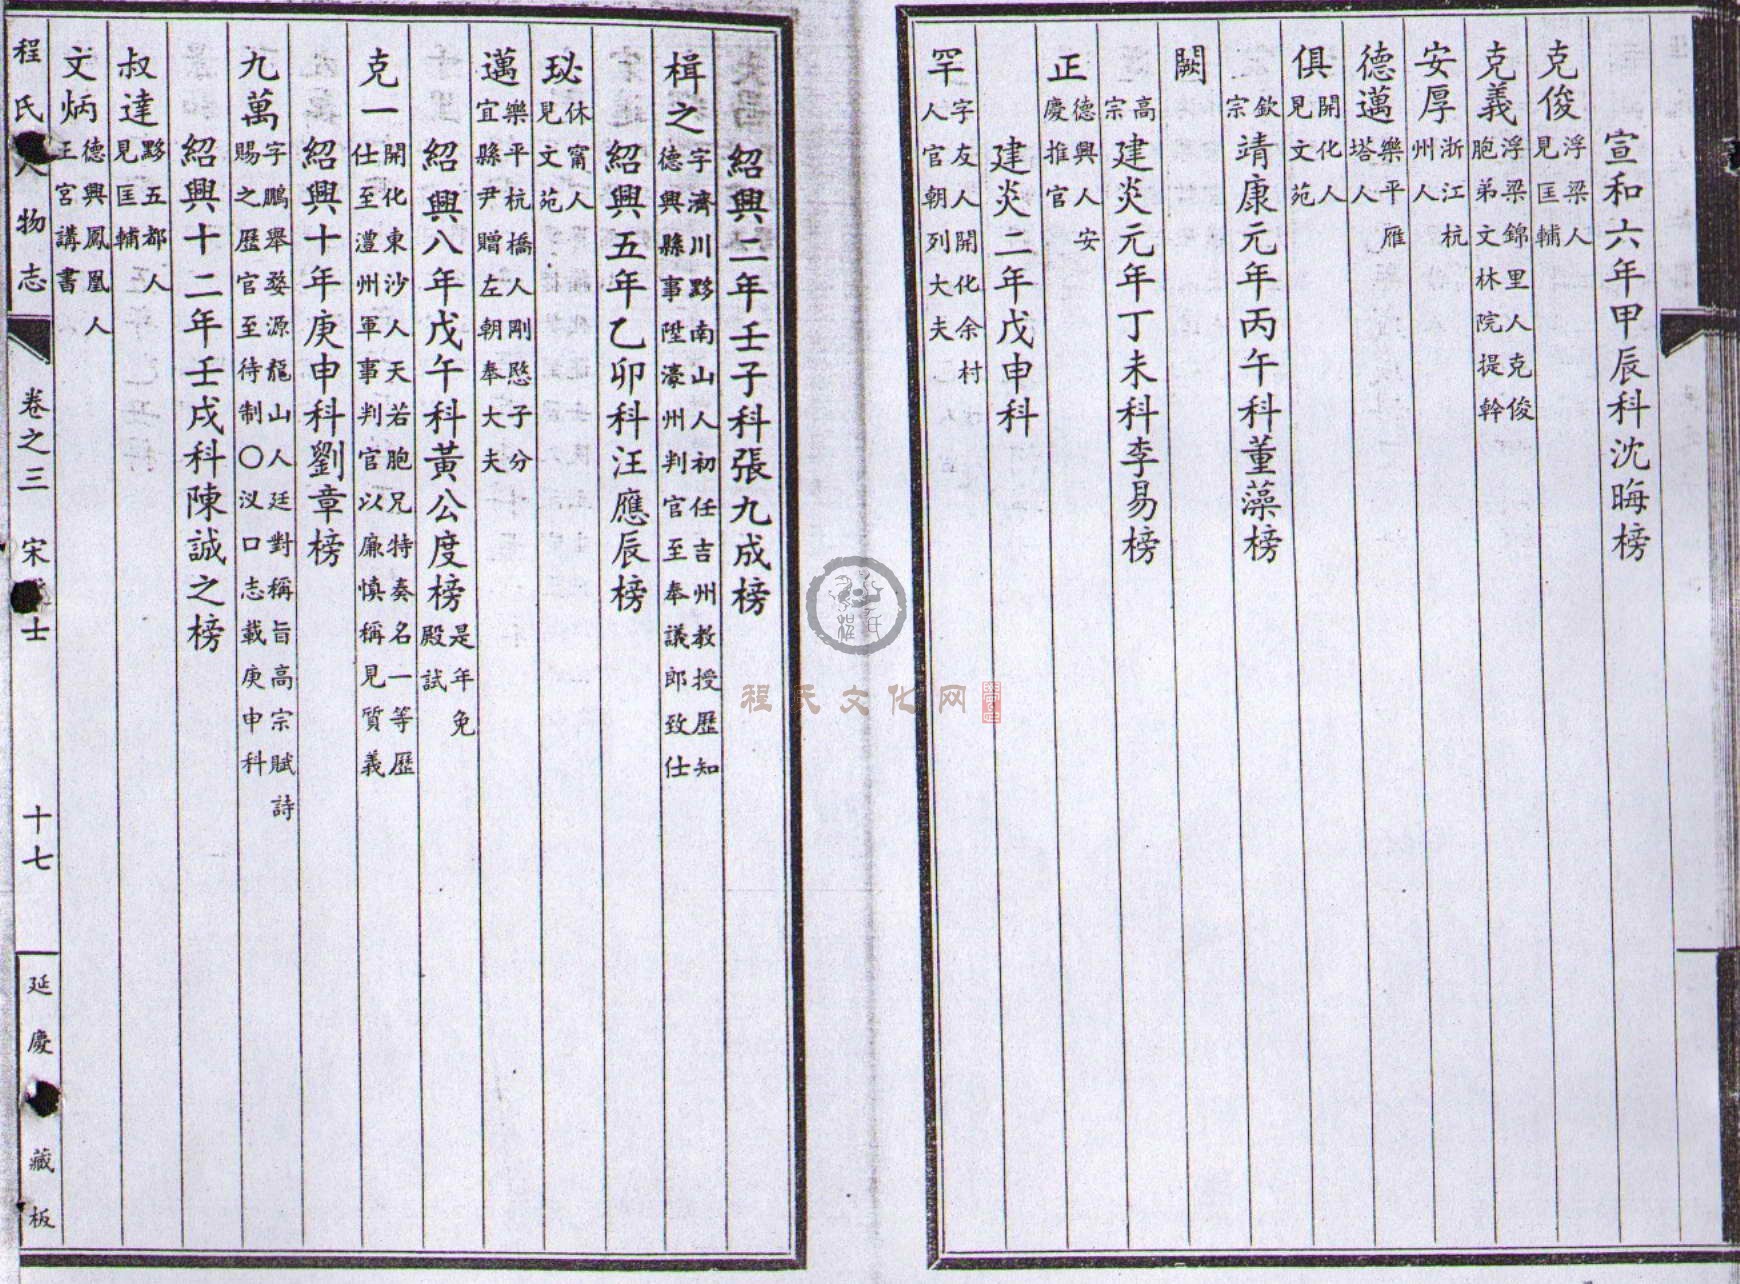 宣和六年甲辰科沈晦榜
克俊 浮梁人見匡輔
克義 浮梁錦里人克俊胞弟文林院提幹
安厚 浙江杭州人
德邁 樂平雁塔人
俱 開化人見文苑
欽宗 靖康元年丙午科董藻榜
闕
高宗 建炎元年丁未科李易榜
正 德興人安慶推官
建炎二年戊申科
罕 字友人開化余村人官朝列大夫
紹興二年壬子科張九成榜
楫之 字濟川黟南山人初任吉州教授歷知德興縣事陞濠州判官至奉議郎致仕
紹興五年乙卯科汪應辰榜
珌 休甯人見文苑
邁 樂平杭橋人剛愍子分宜縣尹贈左朝奉大夫
紹興八年戊午科黃公度榜 是年免殿試
克一 開化東沙人天若胞兄特奏名一等歷仕至澧州軍事判官以廉慎稱見質義
紹興十年庚申科劉章榜
九萬 字鵬舉婺源龍山人廷對稱旨高宗賦詩賜之歷官至待制○汊口志載庚申科
紹興十二年壬戌科陳誠之榜
叔達 黟五都人見匡輔
文炳 德興鳳凰人王宮講書
程氏人物志 卷之三 宋 士 十七 延慶 藏板
程氏文化网